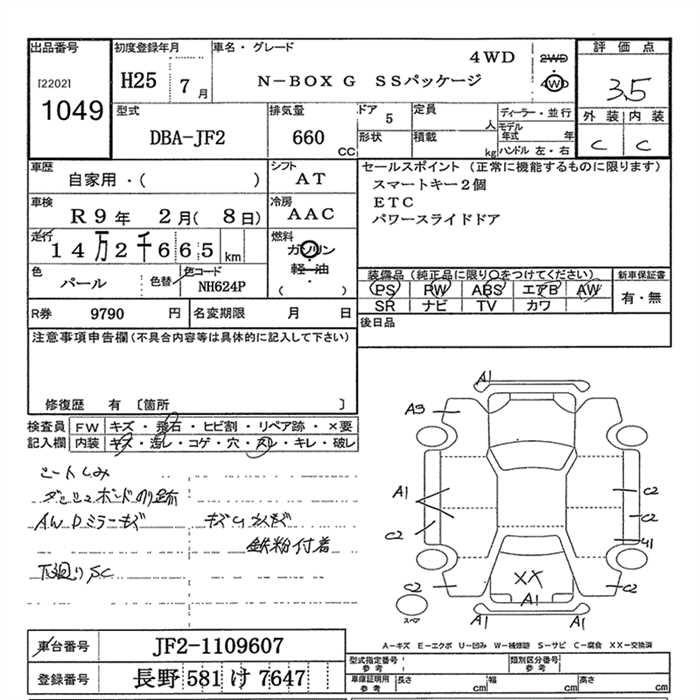 出品番号
[2202]
1049
初度登録年月
H25 7 月
車名・グレード
4WD
N-BOX G SSパッケージ
2WD
4WD
評価点
3.5
外装 内装
C C
型式
DBA-JF2
排気量
660 CC
ドア 5
形状
定員 人
積載 kg
ディーラー・並行
モデル年式 年
ハンドル 左・右
車歴
自家用・( )
シフト
AT
車検
R9年 2月( 8日)
冷房
AAC
走行
14万2千665 km
燃料
ガソリン
軽油
( )
色
パール
色替
色コード
NH624P
R券 9790 円
名変期限 月 日
セールスポイント(正常に機能するものに限ります)
スマートキー2個
ETC
パワースライドドア
装備品(純正品に限り○をつけてください)
PS PW ABS エアB AW
SR ナビ TV カワ
新車保証書
有・無
後日品
注意事項申告欄(不具合内容等は具体的に記入して下さい)
修復歴 有 〔箇所 〕
検査員記入欄
FW キズ・飛石・ヒビ割・リペア跡・×要
内装 キズ・汚レ・コゲ・穴・スレ・キレ・破レ
シートしみ
ダッシュボンドのり跡
AW Dミラーキズ
鉄粉付着
下廻りSC
A1
A3
A1
C2
C2
C2
C2
U1
C2
XX
A1
A1
A1
スペア
A-キズ E-エクボ U-凹み W-補修跡 S-サビ C-腐食 XX-交換済
車台番号 JF2-1109607
登録番号 長野 581 け 7647
型式指定番号 参考
類別区分番号 参考
車庫証明用 参考
長さ cm 幅 cm 高さ cm